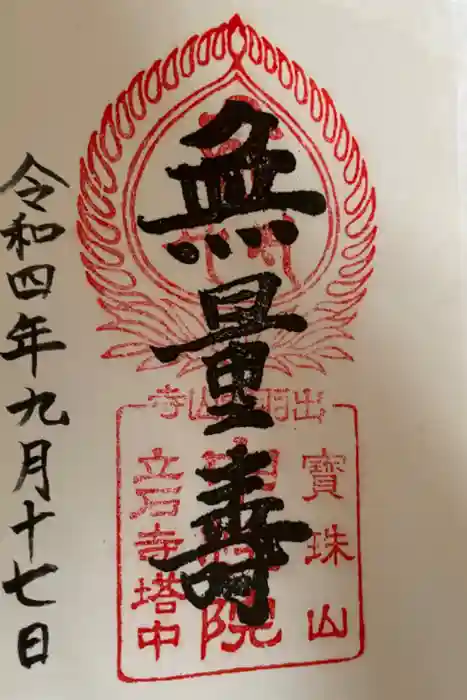 無量壽
出羽山寺
寶珠山
院
立石寺塔中
令和四年九月十七日